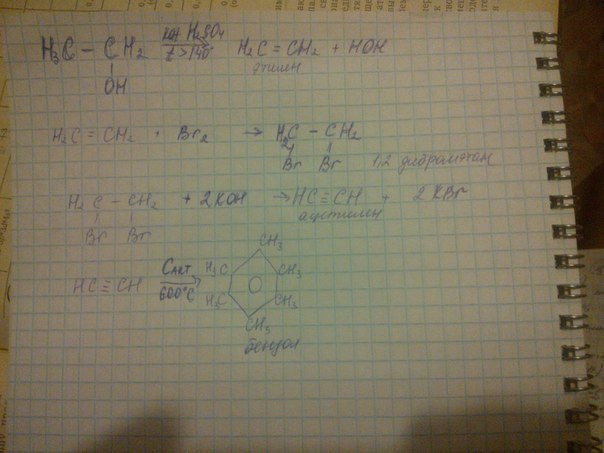 H₃C – CH₂ кат H₂SO₄ t>140° H₂C = CH₂ + HOH
OH этилен
H₂C = CH₂ + Br₂ → H₂C – CH₂
Br Br 1,2 дибромэтан
H₂C – CH₂ + 2KOH → HC ≡ CH + 2KBr
Br Br ацетилен
HC ≡ CH Cакт. 600°C
CH₃
H₃C CH₃
H₃C CH₃
CH₃
бензол